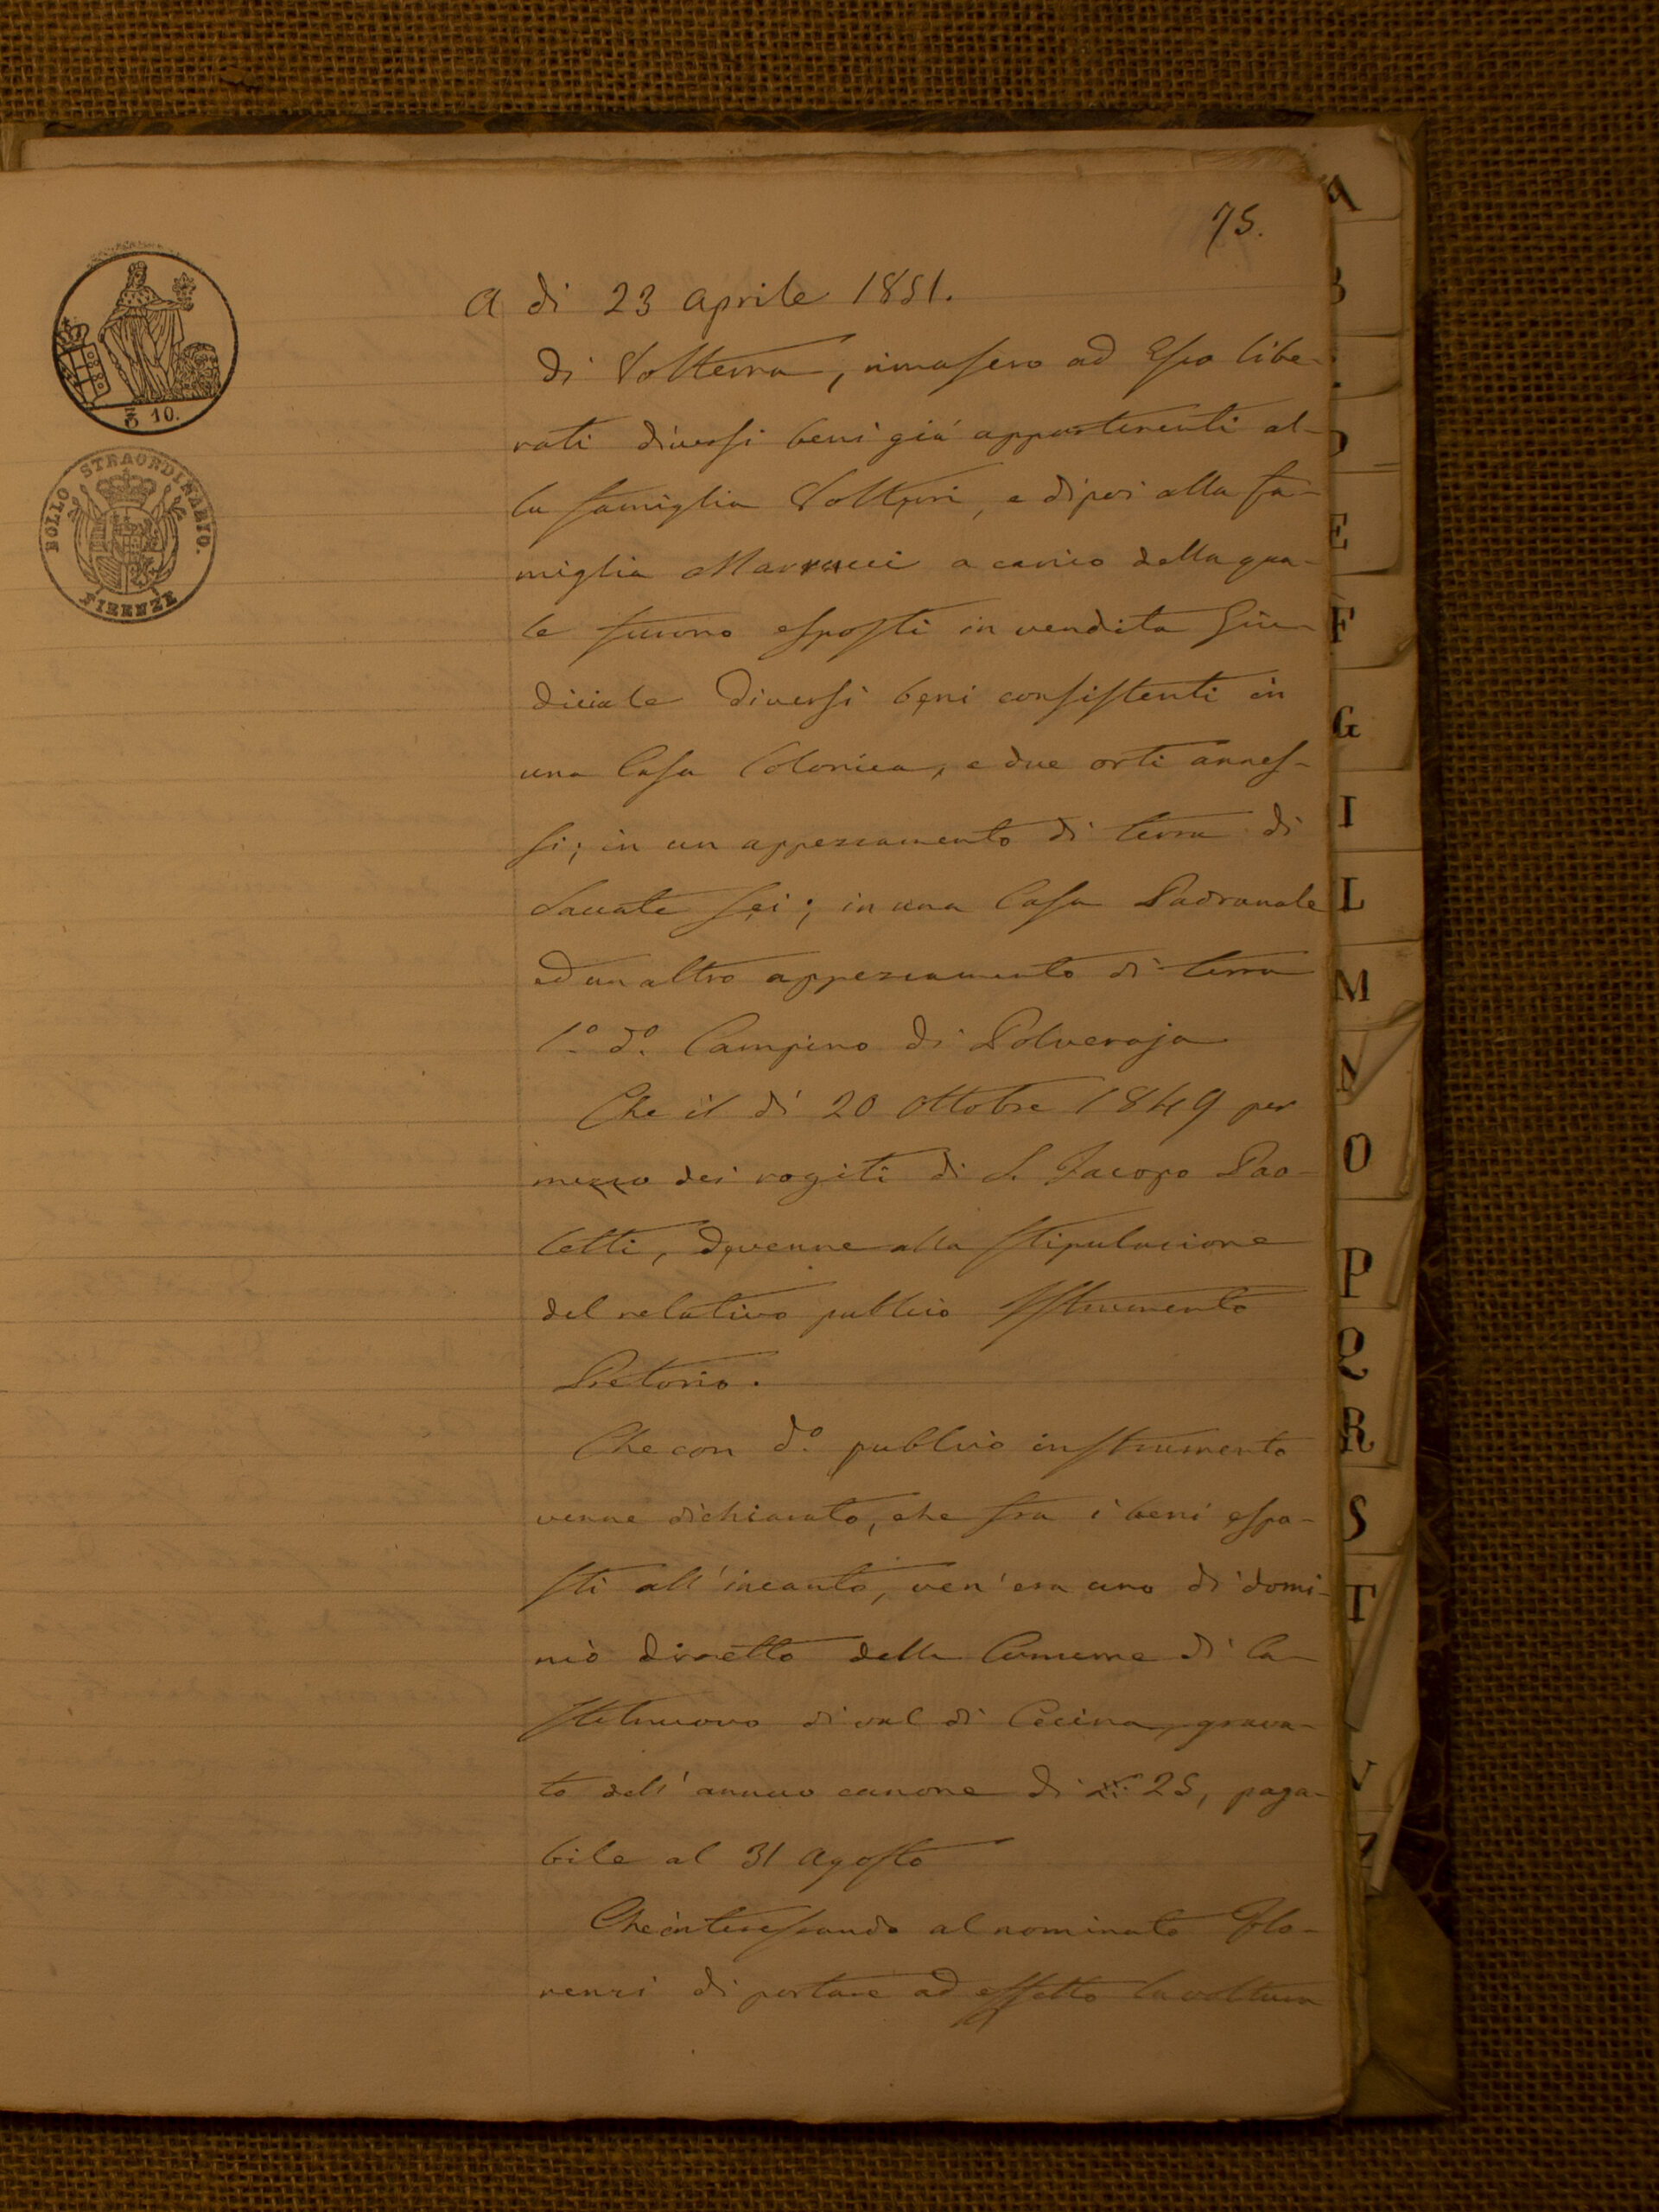 75.
A di 23 Aprile 1851.
di Volterra, rimasero ad Esso libe-
rati diversi beni giá appartenenti al-
la famiglia Volterri, e dipoi alla fa-
miglia Marrucci a carico della qua-
le furono esposti in vendita Giu-
diciale diversi beni consistenti in
una Casa Colonica, e due orti annes-
si; in un appezzamento di terra di
Saccate sei; in una Casa Padronale
ed un altro appezzamento di terra
l.º d.º Campino di Polveraja
Che il di 20 Ottobre 1849 per
mezzo dei rogiti di S. Jacopo Pao-
letti, devenne alla stipulazione
del relativo publico Istrumento
Pretorio.
Che con d.º publico instrumento
venne dichiarato, che fra i beni espo-
sti all'incanto, ven'era uno di domi-
nio diretto della Comune di Ca-
stelnuovo di val di Cecina, grava-
to dell'annuo canone di 25, paga-
bile al 31 Agosto
Che interessando al nominato
renzi di portare ad effetto la voltura
10.
BOLLO STRAORDINARIO.
FIRENZE
A
B
E
F
G
I
L
M
N
O
P
Q
R
S
T
V
Z